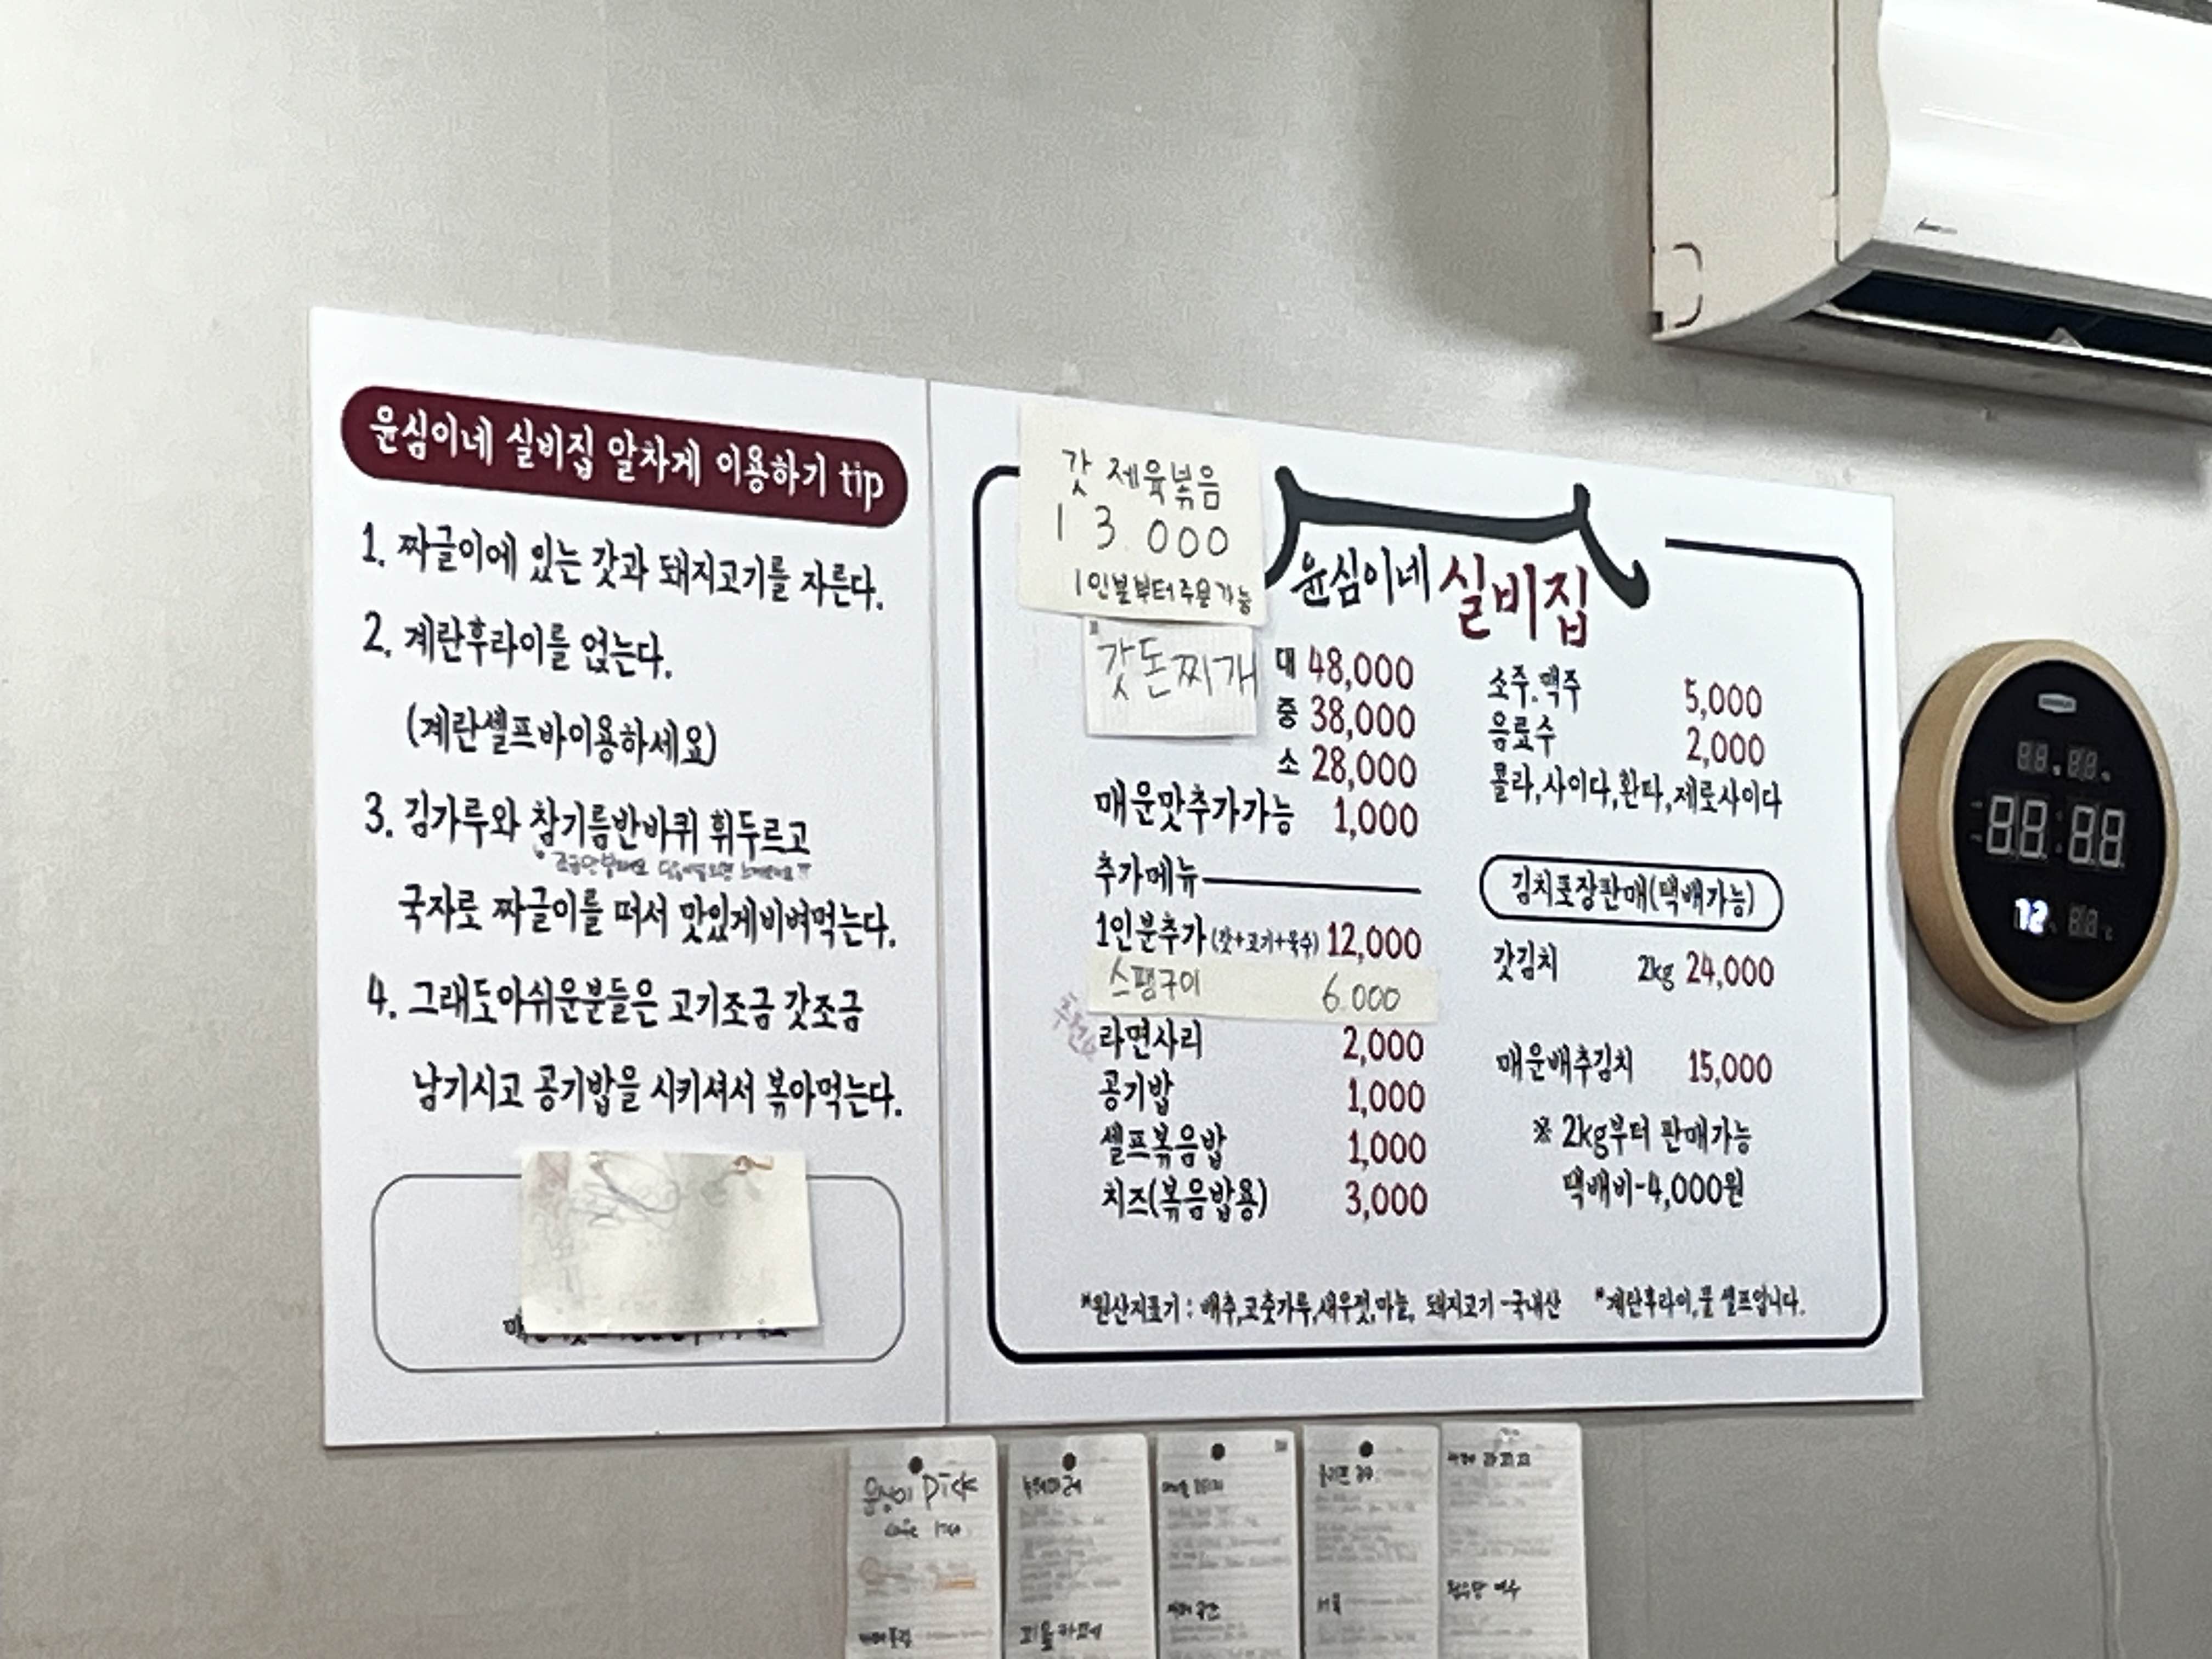 윤심이네 실비집 알차게 이용하기 tip
1. 짜글이에 있는 갓과 돼지고기를 자른다.
2. 계란후라이를 얹는다.
(계란셀프바이용하세요)
3. 김가루와 참기름반바퀴 휘두르고
국자로 짜글이를 떠서 맛있게비벼먹는다.
4. 그래도아쉬운분들은 고기조금 갓조금
남기시고 공기밥을 시키셔서 볶아먹는다.
갓 제육볶음
13.000
1인분부터주문가능
윤심이네 실비집
갓돈찌개
대 48,000
중 38,000
소 28,000
매운맛추가가능 1,000
추가메뉴
1인분추가 (갓+고기+육수) 12,000
스팸구이 6.000
추천
라면사리 2,000
공기밥 1,000
셀프볶음밥 1,000
치즈(볶음밥용) 3,000
소주.맥주 5,000
음료수 2,000
콜라,사이다,환타,제로사이다
김치포장판매(택배가능)
갓김치 2kg 24,000
매운배추김치 15,000
※ 2kg부터 판매가능
택배비-4,000원
*원산지표기 : 배추,고춧가루,새우젓,마늘, 돼지고기-국내산 *계란후라이,물 셀프입니다.
88:88
12
윤심이 pick